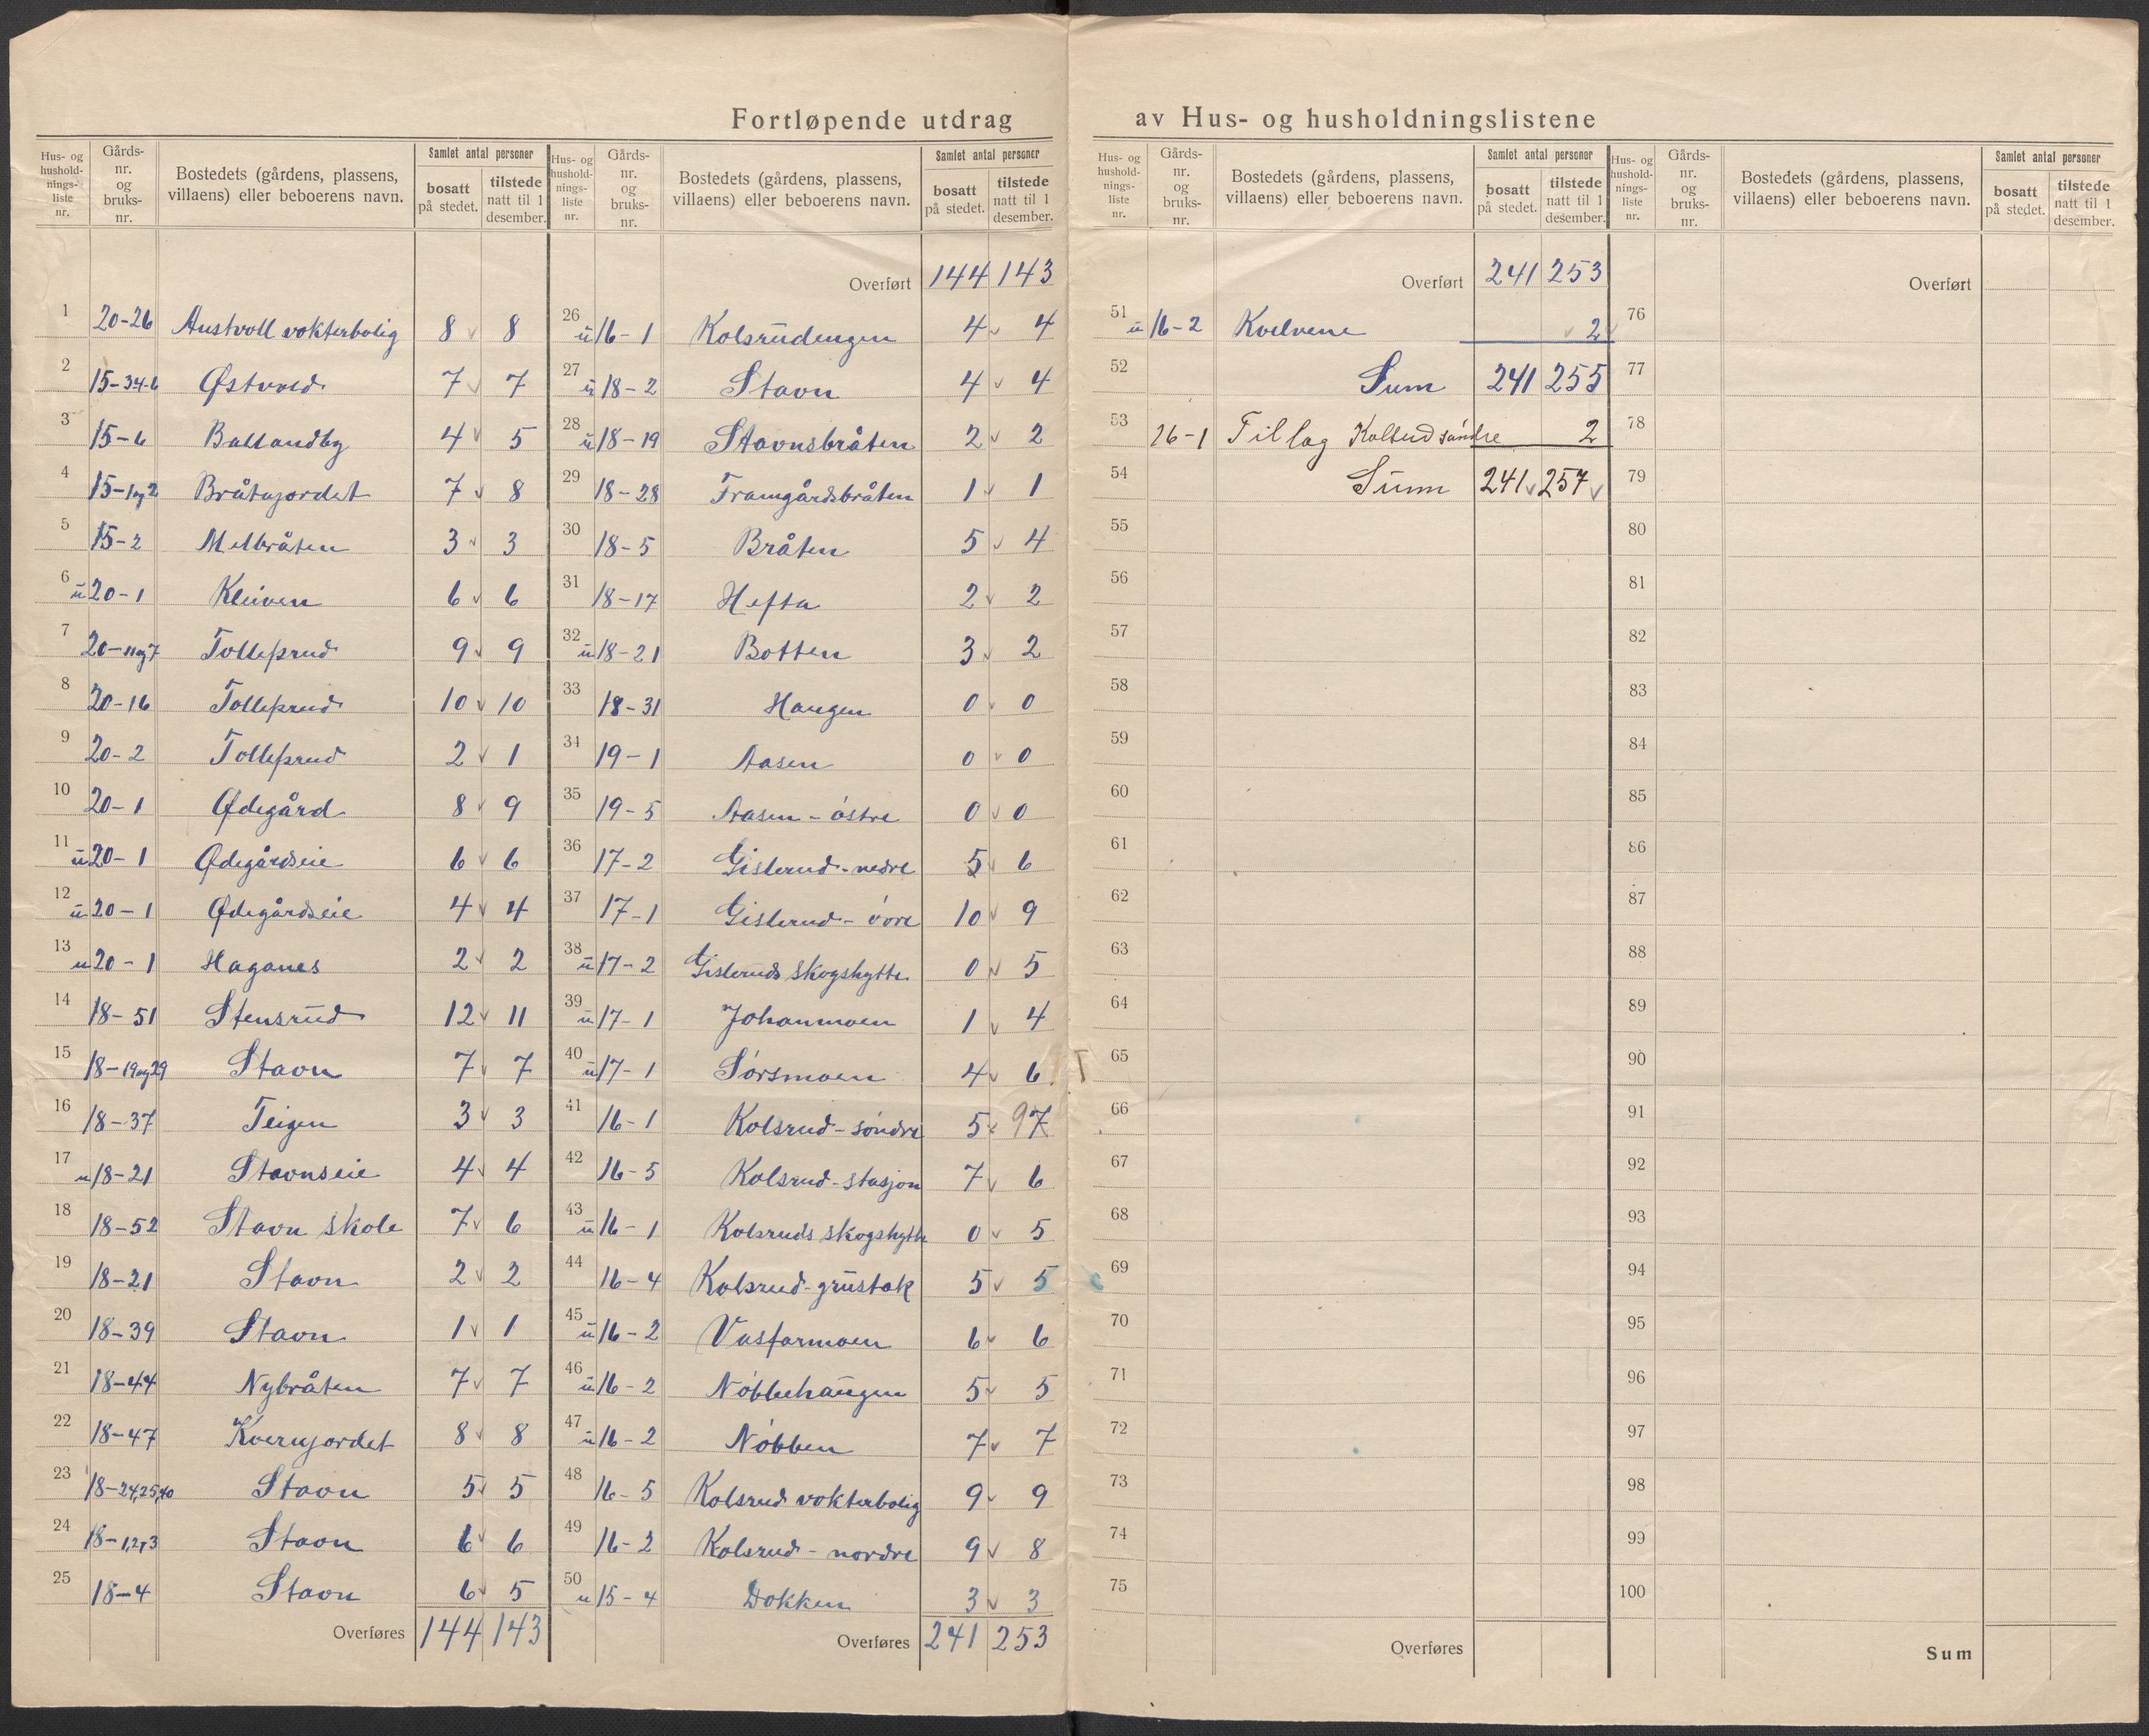 Fortløpende utdrag av Hus- og husholdningslistene
Hus- og hushold-nings-liste nr. | Gårds-nr. og bruks-nr. | Bostedets (gårdens, plassens, villaens) eller beboerens navn. | Samlet antal personer | bosatt på stedet. | tilstede natt til 1 desember.
1 20-26 Austvoll vokterbolig 8 8
2 15-34-6 Østvold 7 7
3 15-6 Ballandby 4 5
4 15-1og2 Bråtajordet 7 8
5 15-2 Melbråten 3 3
6 u 20-1 Kleiven 6 6
7 20-11og7 Tollefsrud 9 9
8 20-16 Tollefsrud 10 10
9 20-2 Tollefsrud 2 1
10 20-1 Ødegård 8 9
11 u 20-1 Ødegårdseie 6 6
12 u 20-1 Ødegårdseie 4 4
13 u 20-1 Haganes 2 2
14 18-51 Stensrud 12 11
15 18-19og29 Stavn 7 7
16 18-37 Teigen 3 3
17 u 18-21 Stavnseie 4 4
18 18-52 Stavn skole 7 6
19 18-21 Stavn 2 2
20 18-39 Stavn 1 1
21 18-44 Nybråten 7 7
22 18-47 Kvernjordet 8 8
23 18-24,25,40 Stavn 5 5
24 18-1,2,3 Stavn 6 6
25 18-4 Stavn 6 5
Overføres 144 143
Hus- og hushold-nings-liste nr. | Gårds-nr. og bruks-nr. | Bostedets (gårdens, plassens, villaens) eller beboerens navn. | Samlet antal personer | bosatt på stedet. | tilstede natt til 1 desember.
Overført 144 143
26 u 16-1 Kolsrudengen 4 4
27 u 18-2 Stavn 4 4
28 u 18-19 Stavnsbråten 2 2
29 18-28 Framgårdsbråten 1 1
30 18-5 Bråten 5 4
31 18-17 Hefta 2 2
32 u 18-21 Botten 3 2
33 18-31 Haugen 0 0
34 19-1 Aasen 0 0
35 19-5 Aasen - østre 0 0
36 17-2 Gislerud - nedre 5 6
37 17-1 Gislerud - øvre 10 9
38 u 17-2 Gisleruds skogshytte 0 5
39 u 17-1 Johanmoen 1 4
40 u 17-1 Sørsmoen 4 6
41 16-1 Kolsrud - søndre 5 97
42 16-5 Kolsrud - stasjon 7 6
43 u 16-1 Kolsruds skogshytte 0 5
44 16-4 Kolsrud - grustak 5 5
45 u 16-2 Vasfarmoen 6 6
46 u 16-2 Nøbbehaugen 5 5
47 u 16-2 Nøbben 7 7
48 16-5 Kolsrud vokterbolig 9 9
49 16-2 Kolsrud - nordre 9 8
50 u 15-4 Dokken 3 3
Overføres 241 253
Hus- og hushold-nings-liste nr. | Gårds-nr. og bruks-nr. | Bostedets (gårdens, plassens, villaens) eller beboerens navn. | Samlet antal personer | bosatt på stedet. | tilstede natt til 1 desember.
Overført 241 253
51 u 16-2 Kvelvene 2
52 Sum 241 255
53 16-1 Tillag Kolsrud søndre 2
54 Sum 241 257
55
56
57
58
59
60
61
62
63
64
65
66
67
68
69
70
71
72
73
74
75
Overføres
Hus- og hushold-nings-liste nr. | Gårds-nr. og bruks-nr. | Bostedets (gårdens, plassens, villaens) eller beboerens navn. | Samlet antal personer | bosatt på stedet. | tilstede natt til 1 desember.
Overført
76
77
78
79
80
81
82
83
84
85
86
87
88
89
90
91
92
93
94
95
96
97
98
99
100
Sum